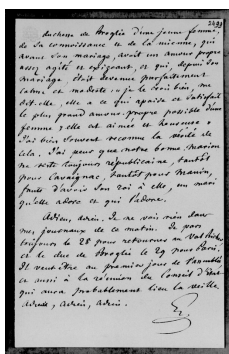 duchesse de Broglie d'une jeune femme,
de sa connoissance et de la mienne, qui
avant son mariage, étoit un amour propre
assez agité et exigeant, et qui, depuis son
mariage, étoit devenue parfaitement
calme et modeste. "Je le crois bien, me
dit-elle, elle a ce qui apaise et satisfait
le plus grand amour-propre possible d'une
femme; elle est aimée et heureuse."
J'ai bien souvent reconnu la vérité de
cela. J'ai peur que notre bonne, marion
ne reste toujours républicaine, tantôt
pour Cavaignac, tantôt pour Manin,
faute d'avoir son roi à elle, un mari
qu'elle adore et qui l'adore.
Adieu, adieu. Je ne vois rien dans
mes journaux de ce matin. Je pars
toujours le 28 pour retourner au Val Richer
et le duc de Broglie le 29 pour Paris.
Il veut être au premier jour de l'assemblée
et aussi à la réunion du Conseil d'Etat
qui aura probablement lieu la veille.
adieu, adieu, adieu.